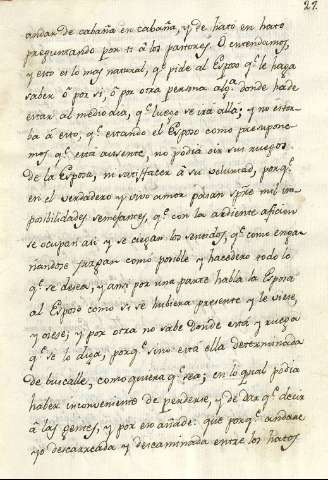 27.
andar de cabaña en cabaña, y de hato en hato
preguntando por ti à los pastores. O entendamos,
y esto es lo mas natural, q.e pide al Esposo q.e le haga
saber ò por si, ò por otra persona alg.a donde ha de
estar al medio dia, q.e luego se irá allá; y no estor-
ba à esto, q.e estando el Esposo como presupone-
mos q.e está ausente, no podia oir sus ruegos
de la Esposa, ni satisfacer à su voluntad, porq.e
en el verdadero y vivo amor pasan spre mil im-
posibilidades semejantes, q.e con la ardiente aficion
se ocupan asi y se ciegan los sentidos, q.e como enga-
ñandose juzgan como posible y hacedero todo lo
q.e se desea, y ansi por una parte habla la Esposa
al Esposo como si se hubiera presente y le viese,
y oiese; y por otra no sabe donde está y ruega
q.e se lo diga, porq.e sino está ella determinada
de buscalle, como quiera q.e sea; en lo qual podia
haber inconveniente de perderse, y de dar q.e decir
à las gentes, y por eso añade: que porq.e andare
yo descarreada y descaminada entre los hatos